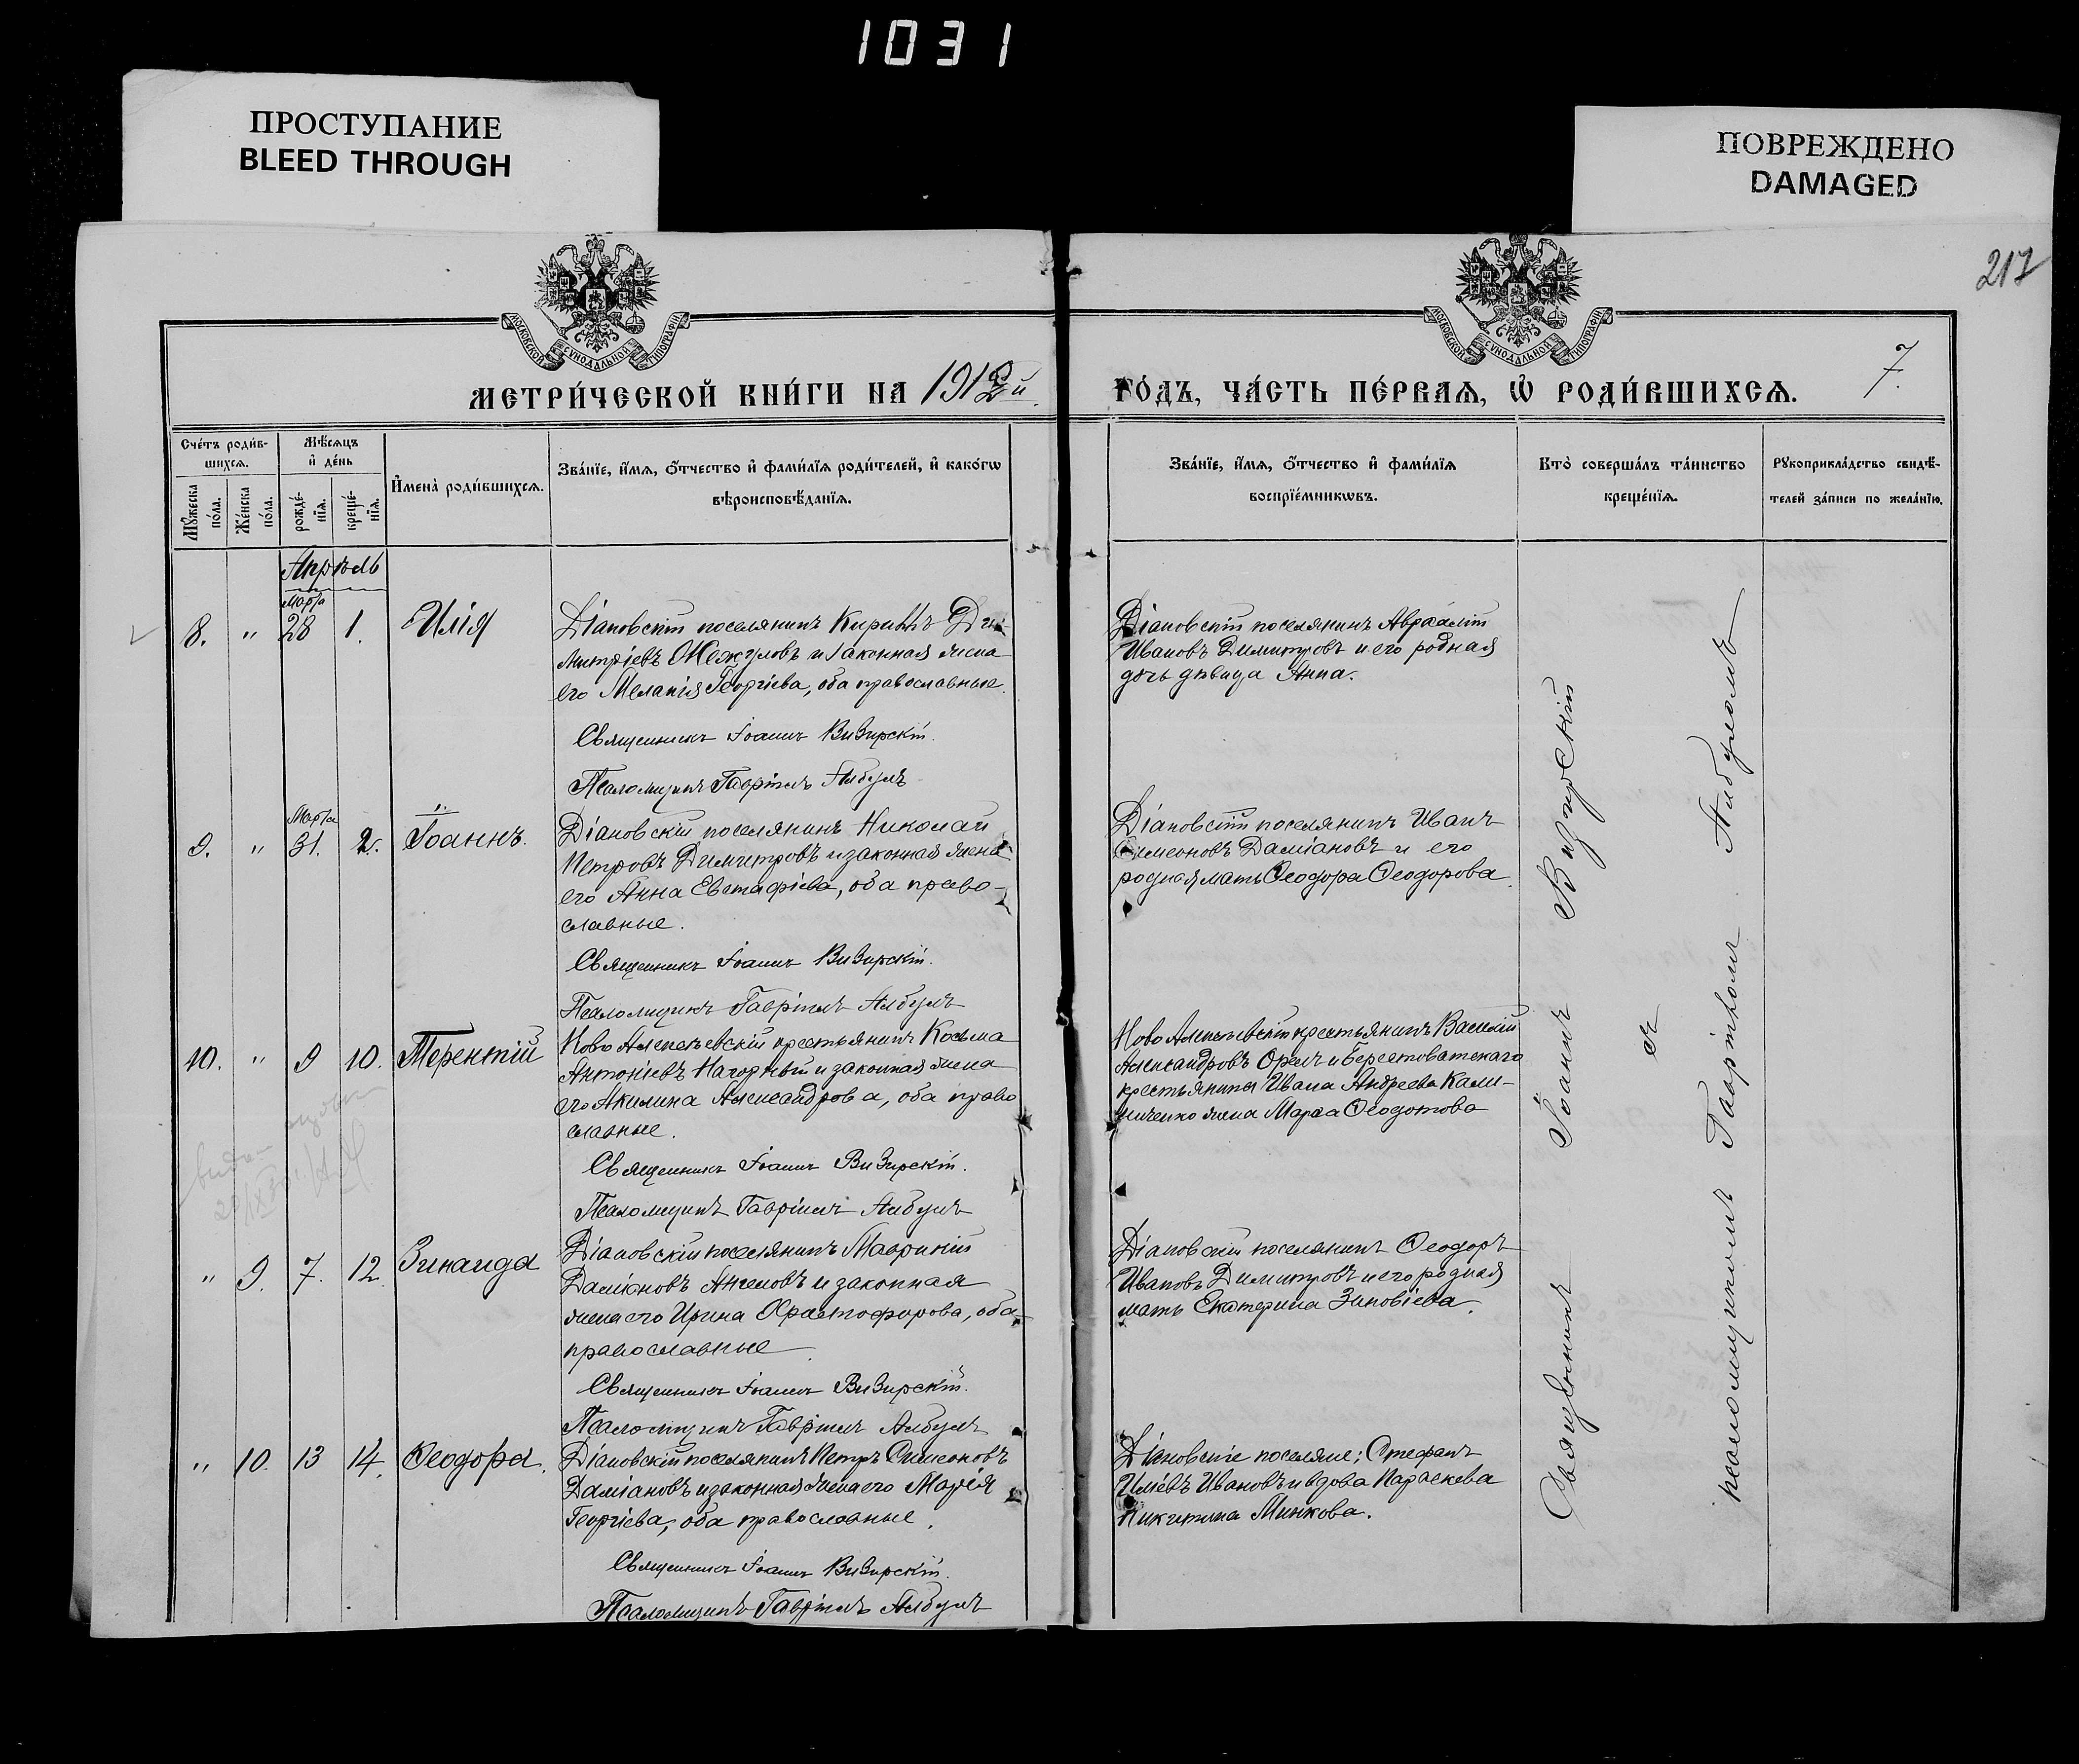 1031
ПРОСТУПАНИЕ
BLEED THROUGH
ПОВРЕЖДЕНО
DAMAGED
217
МОСКОВСКОЙ СѴНОДАЛЬНОЙ ТИПОГРАФІИ
МОСКОВСКОЙ СѴНОДАЛЬНОЙ ТИПОГРАФІИ
МЕТРИ́ЧЕСКОЙ КНИ́ГИ НА 1912й
ГО́ДЪ, ЧА́СТЬ ПЕ́РВАЯ, Ѽ РОДИ́ВШИХСЯ.
7.
Сче́тъ роди́в-
шихся.
Мѣ́сяцъ
и҆ де́нь
Мꙋ́жеска по́ла.
Же́нска по́ла.
рожде́-
нїя.
креще́-
нїя.
И҆мена̀ роди́вшихся.
Зва́нїе, и҆́мя, ѻ҆́тчество и҆ фами́лїя роди́телей, и҆ како́гѡ
вѣроисповѣ́данїя.
Зва́нїе, и҆́мя, ѻ҆́тчество и҆ фами́лїя
воспрїе́мникѡвъ.
Кто̀ соверша́лъ та́инство
креще́нїя.
Рꙋкоприкла́дство свидѣ́-
телей за́писи по жела́нїю.
Апрѣль
Марта
8. " 28 1. Илія
Діановскій поселянинъ Кириллъ Ди-
митріевъ Межуловъ и законная жена
его Меланія Георгіева, оба православные.
Священникъ Іоаннъ Визирскій.
Псаломщикъ Гавріилъ Албулъ
Діановскій поселянинъ Авраамій
Ивановъ Димитровъ и его родная
дочь дѣвица Анна.
Марта
9. " 31. 2. Іоаннъ.
Діановскій поселянинъ Николай
Петровъ Димитровъ и законная жена
его Анна Евстафіева, оба право-
славные.
Священникъ Іоаннъ Визирскій.
Псаломщикъ Гавріилъ Албулъ
Діановскій поселянинъ Иванъ
Симеоновъ Даміановъ и его
родная мать Ѳеодора Ѳеодорова.
10. " 9 10. Терентій
Ново Алексѣевскій крестьянинъ Косьма
Антоніевъ Нагорный и законная жена
его Акилина Александрова, оба право
славные.
Священникъ Іоаннъ Визирскій.
Псаломщикъ Гавріилъ Албулъ
Ново Алексѣевскій крестьянинъ Василій
Александровъ Орелъ и Берестоватскаго
крестьянина Ивана Андреева Кали-
ниченко жена Марѳа Ѳеодотова
" 9. 7. 12. Зинаида
Діановскій поселянинъ Маврикій
Даміановъ Ангеловъ и законная
жена его Ирина Христофорова, оба
православные.
Священникъ Іоаннъ Визирскій.
Псаломщикъ Гавріилъ Албулъ
Діановскій поселянинъ Ѳеодоръ
Ивановъ Димитровъ и его родная
мать Екатерина Зиновіева.
" 10. 13 14. Ѳеодора.
Діановскій поселянинъ Петръ Симеоновъ
Даміановъ и законная жена его Марія
Георгіева, оба православные.
Священникъ Іоаннъ Визирскій.
Псаломщикъ Гавріилъ Албулъ
Діановскіе поселяне: Стефанъ
Иліевъ Ивановъ и вдова Параскева
Никитина Минкова.
Священникъ Іоаннъ Визирскій
съ
псаломщикомъ Гавріиломъ Албуломъ